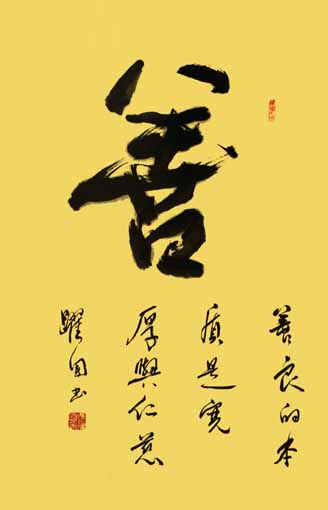 善
善良的本
质是宽
厚與仁慈
躍國书